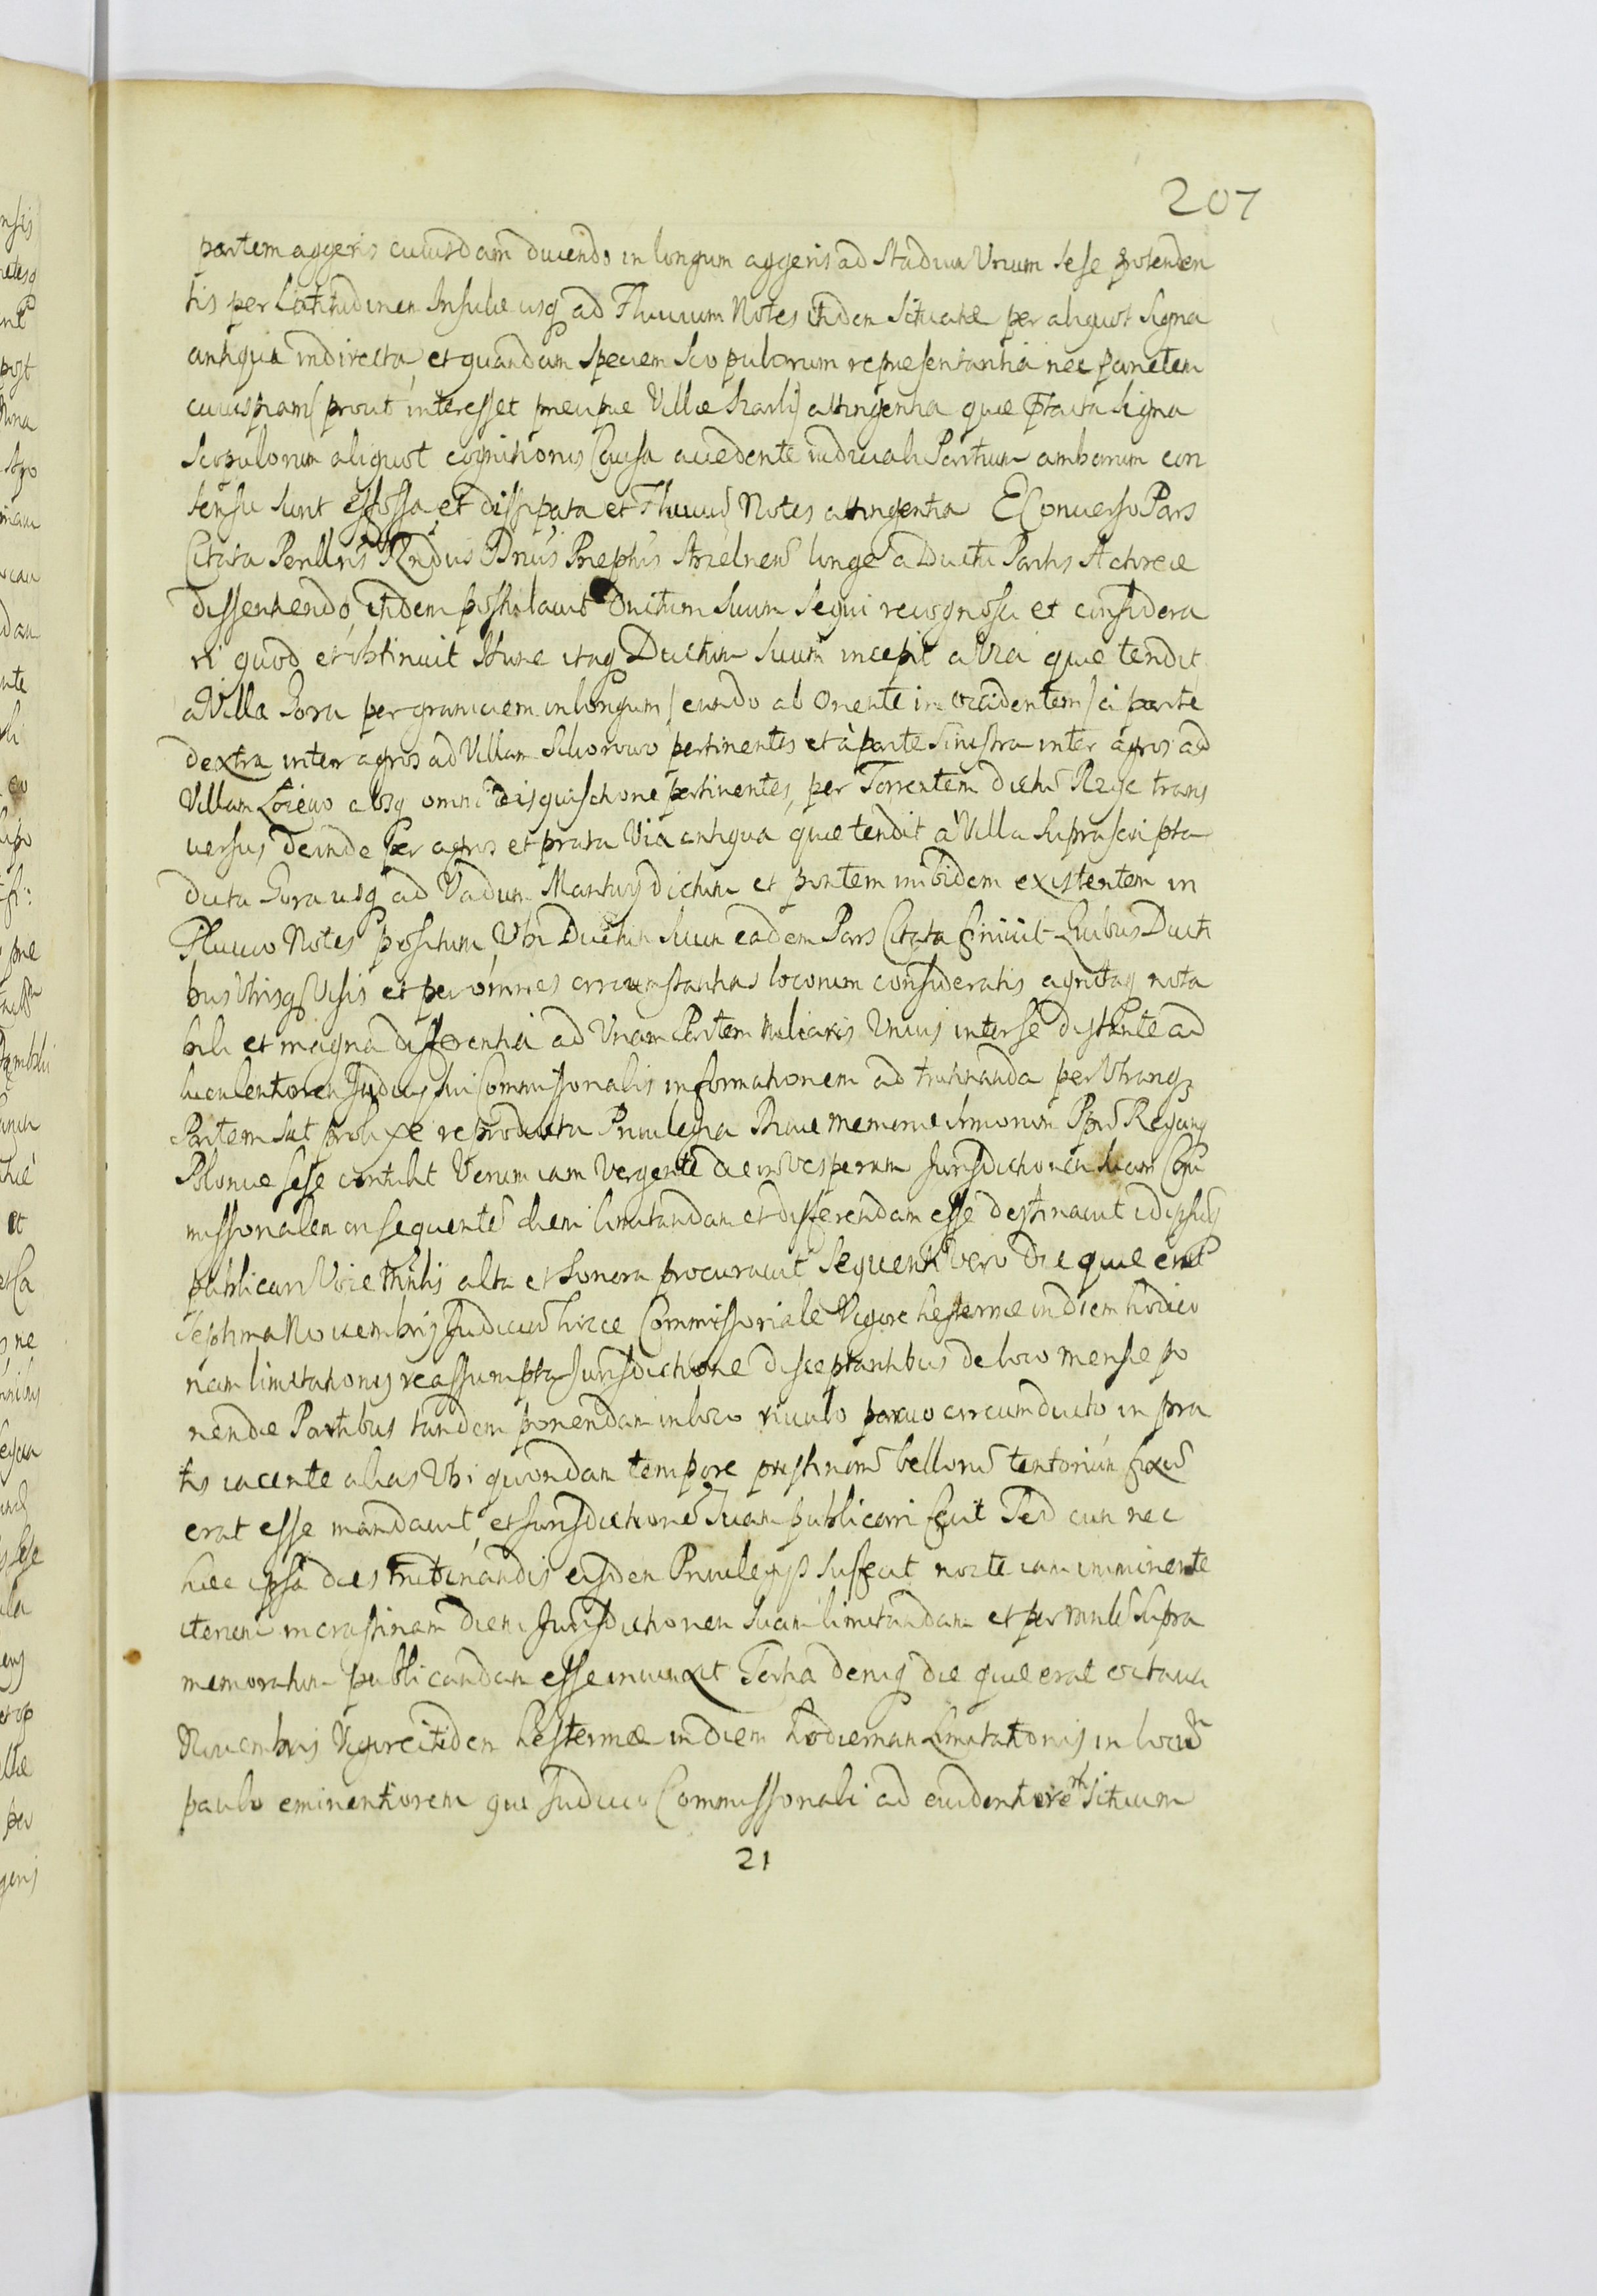 207
partem aggeris cuiusdam ducendo in longum aggeris ad Stadium Unum sese protenden
tis per Latitudinem Insulae usq ad Fluvium Notes itidem Situatae per aliquot Signa
antiqua indirecta et quandam speciem scopulorum representantia nec parietem
cuiuspiam prout interesset praecipue Villae attingentia quae Signa
Scopulorum aliquot cognitionis Causa accedente iudiciali Partium ambarum con
sensu sunt effossa et dissipata et Fluvius Notes attingentia E Converso Pars
Citata longe a Ductu Partis Actoreae
dissentiendo, itidem postulavit Ductum Suum Sequi recognosci et considera
ri quod et obtinuit Hunc itaq Ductum Suum incepit a Via quae tendit
a Villa Gora per graniciem in longum eundo ab Oriente in occidentem a parte
dextra inter agros ad Villam pertinentes et à parte Sinistra inter agros ad
Villam absq omni disquisitione pertinentes, per Torrentem trans
versus deinde Per agros et prata Via antiqua quae tendit a Villa Suprascripta
dicta Gora usq ad Vadum dictum et pontem inibidem existentem in
Fluvio Notes positum, Ubi Ductum Suum eadem Pars Citata finivit Quibus Ducti
bus Utrisq Visis et per omnes circumstantias locorum consideratis agnitaq nota
bili et magna differentia ad Unam Partem miliaris Unius inter se distante ad
luculentiorem Judicij sui Commissorialis informationem ad trutinanda per Utramq
Partem sat prolixe reproducta Privilegia Divae Memoriae Regum
Poloniae sese contulit Verum iam Vergente die in Vesperam Jurisdictionem suam Com
missorialem in sequentē diem limitandam et differendam esse destinavit idipsum
publicari Voce alta et Sonora procuravit Sequenti vero Die quae erat
Septima Novembris Judicium hocce Commissoriale Vigore hesternae in diem hodier
nam limitationis reassumpta Jurisdictione disceptantibus de loco mensae po
nendae Partibus tandem ponendam in loco rivulo parvo circumducto in pra
tis iacente alias Ubi quondam tempore tentorium fixum
erat esse mandavit, et Jurisdictionē Suam publicari fecit Sed cum nec
haec ipsa dies trutinandis eisdem Privilegijs suffecit nocte iam imminente
iterum in crastinam diem Jurisdictionem Suam limitandam et per supra
memoratum publicandam esse iniunxit Tertia deniq die quae erat octava
Novembris Vigore itidem hesternae in diem hodiernam Limitationis in locum
paulo eminentiorem qui Judicio Commissoriali ad evidentiorem situum
21